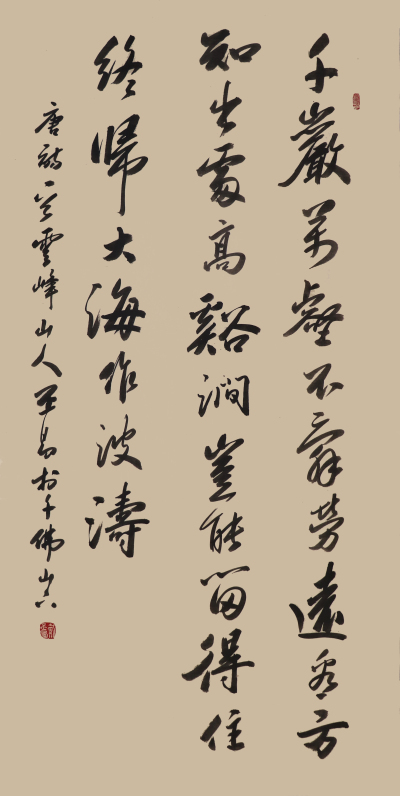 千巖萬壑不辭勞遠看方
知出處高谿澗豈能留得住
終歸大海作波濤
唐詩一首雲峰山人至易於千佛山下